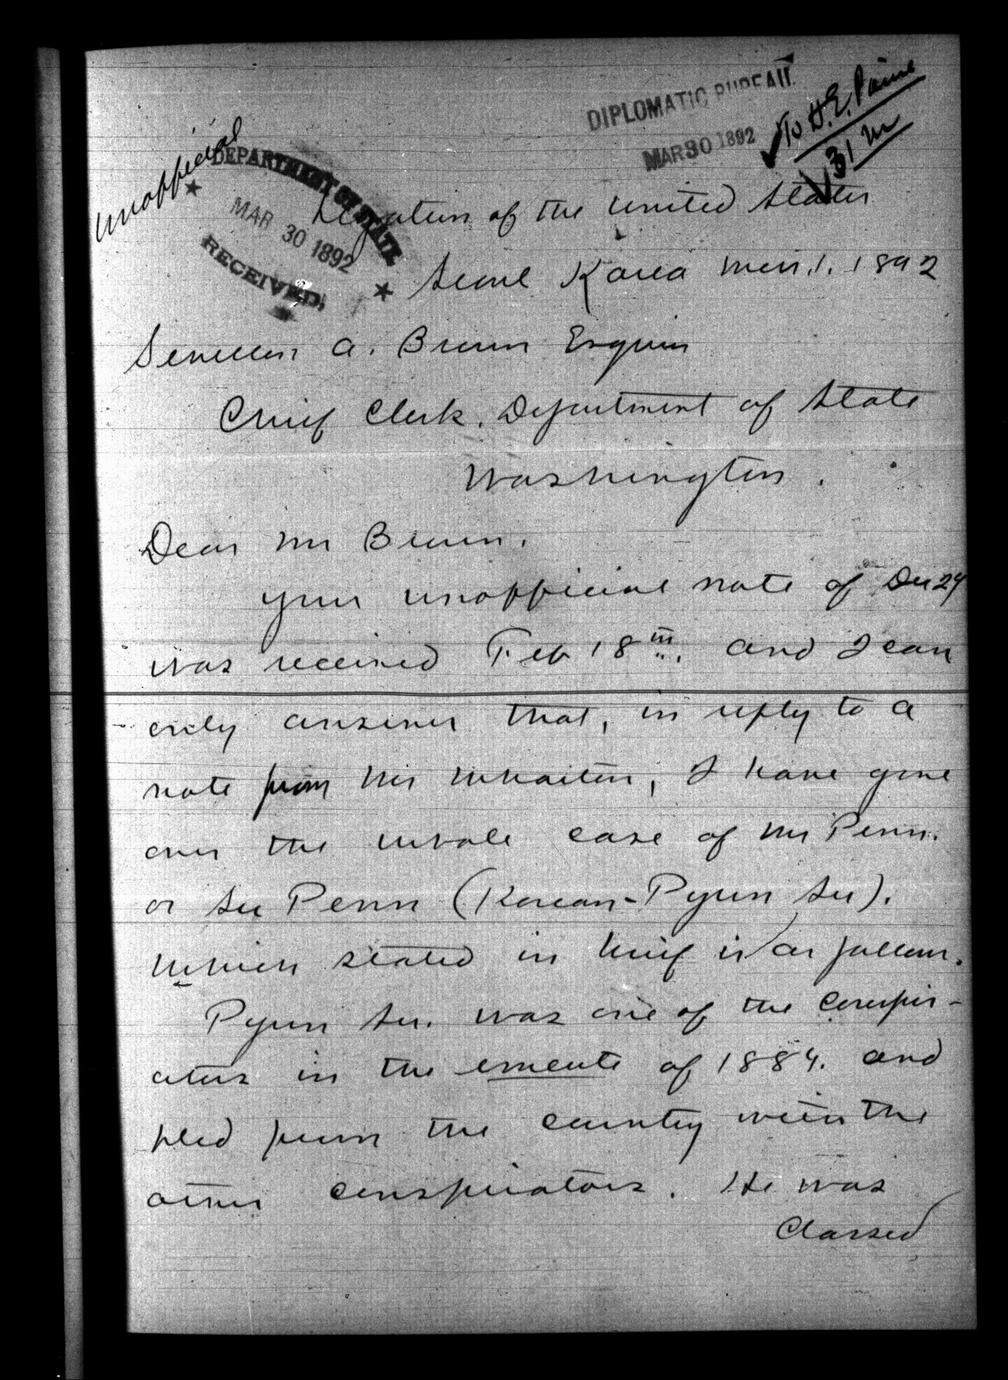 Unofficial
DEPARTMENT OF STATE
MAR 30 1892
RECEIVED.
DIPLOMATIC BUREAU.
MAR 30 1892
To H.E. Paine
31 M
Legation of the United States
Seoul Korea Mch. 1. 1892
Sevellon A. Brown Esquire
Chief Clerk. Department of State
Washington.
Dear Mr Brown.
Your unofficial note of Dec 24
was received Feb 18th. and I can
only answer that, in reply to a
note from Mr Wharton, I have gone
over the whole case of Mr Penn.
or Su Penn (Korean-Pyun Su).
which stated in brief is as follows.
Pyun Su. was one of the conspir-
ators in the emeute of 1884. and
fled from the country with the
other conspirators. He was
Classed